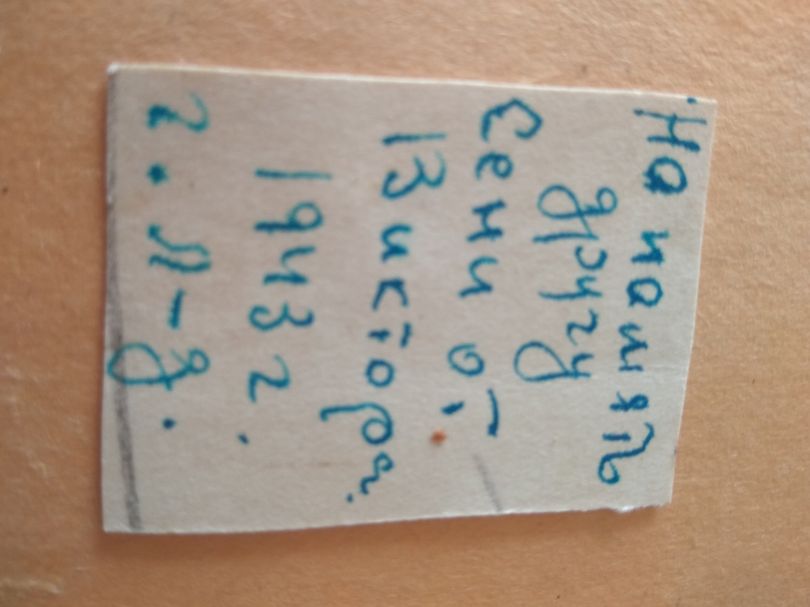 На память
другу
Сени от
Виктора.
1943 г.
г. Л-д.